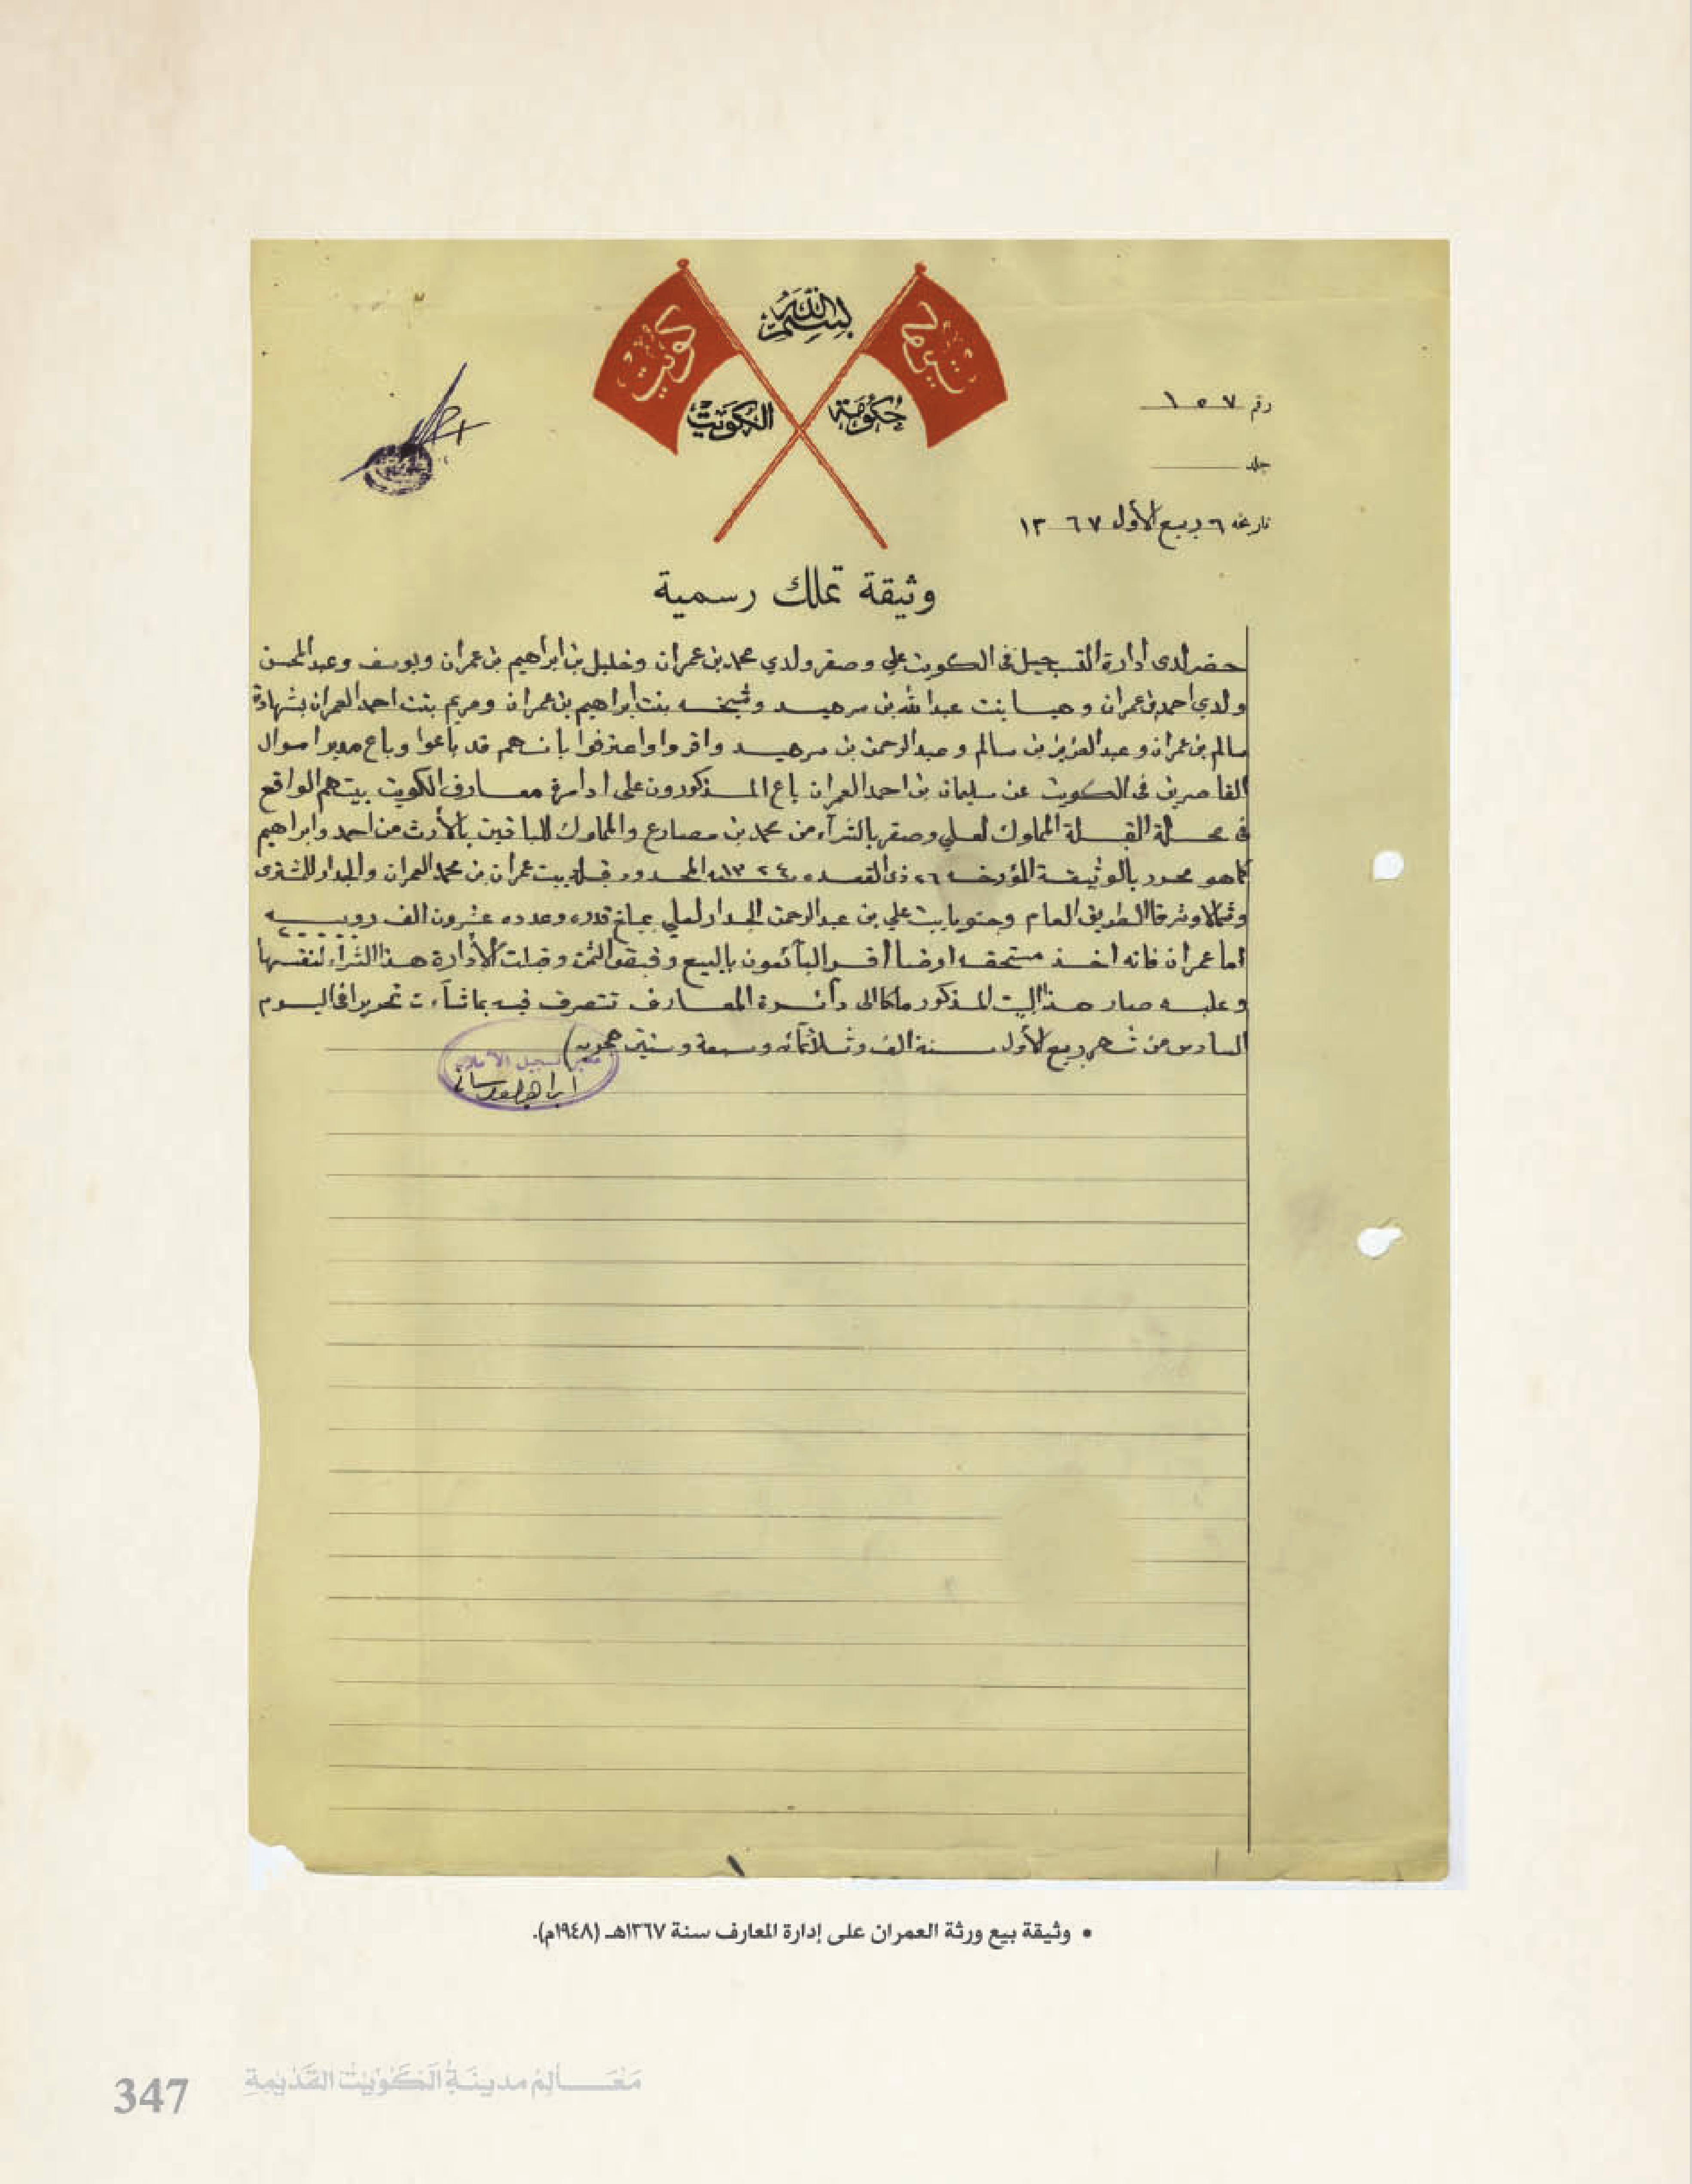 بسم الله
كويت
كويت
حكومة الكويت
رقم ١٥٧
جلد
تاريخه ٦ ربيع الأول ١٣٦٧
وثيقة تملك رسمية
حضر لدى أدارة التسجيل في الكويت علي وصقر ولدي محمد بن عمران وخليل بن ابراهيم بن عمران ويوسف وعبد المحسن
ولدي احمد بن عمران وهيا بنت عبد الله بن سرهيد وشيخه بنت ابراهيم بن عمران ومريم بنت احمد العمران بشهادة
سالم بن عمران وعبد العزيز بن سالم وعبد الرحمن بن سرهيد واقروا واعترفوا بانهم قد باعوا وباع مدير اموال
القاصرين في الكويت عن سليمان بن احمد العمران باع المذكورون على ادارة معارف الكويت بيتهم الواقع
في محلة القبلة المملوك لعلي وصقر بالشرآء من محمد بن مصارع والمملوك للباقين بالأرث من احمد وابراهيم
كما هو محرر بالوثيقة المؤرخه ٢٦ ذي القعده ١٣٢٤ المحدود قبلة بيت عمران بن محمد العمران والجدار للمشتري
وشمالا وشرقا الطريق العام وجنوبا بيت علي بن عبد الرحمن الجدار لعلي بمبلغ قدره وعدده عشرون الف روبيه ٢٠٠٠٠
اما عمران فانه اخذ مستحقه ارضا أقر البآئعون بالبيع وقبض الثمن وقبلت الأدارة هذا الشرآء لنفسها
وعليه صار هذا البيت المذكور ملكا الى دآئرة المعارف تتصرف فيه بما شآءت تحريرا في اليوم
السادس من شهر ربيع الأول سنة الف وثلاثمائه وسبعة وستين هجريه
مدير تسجيل الأملاك
• وثيقة بيع ورثة العمران على إدارة المعارف سنة ١٣٦٧هـ (١٩٤٨م).
347 مَعَالِمُ مدينَةِ الكُوَيْت القَدْيمَةِ